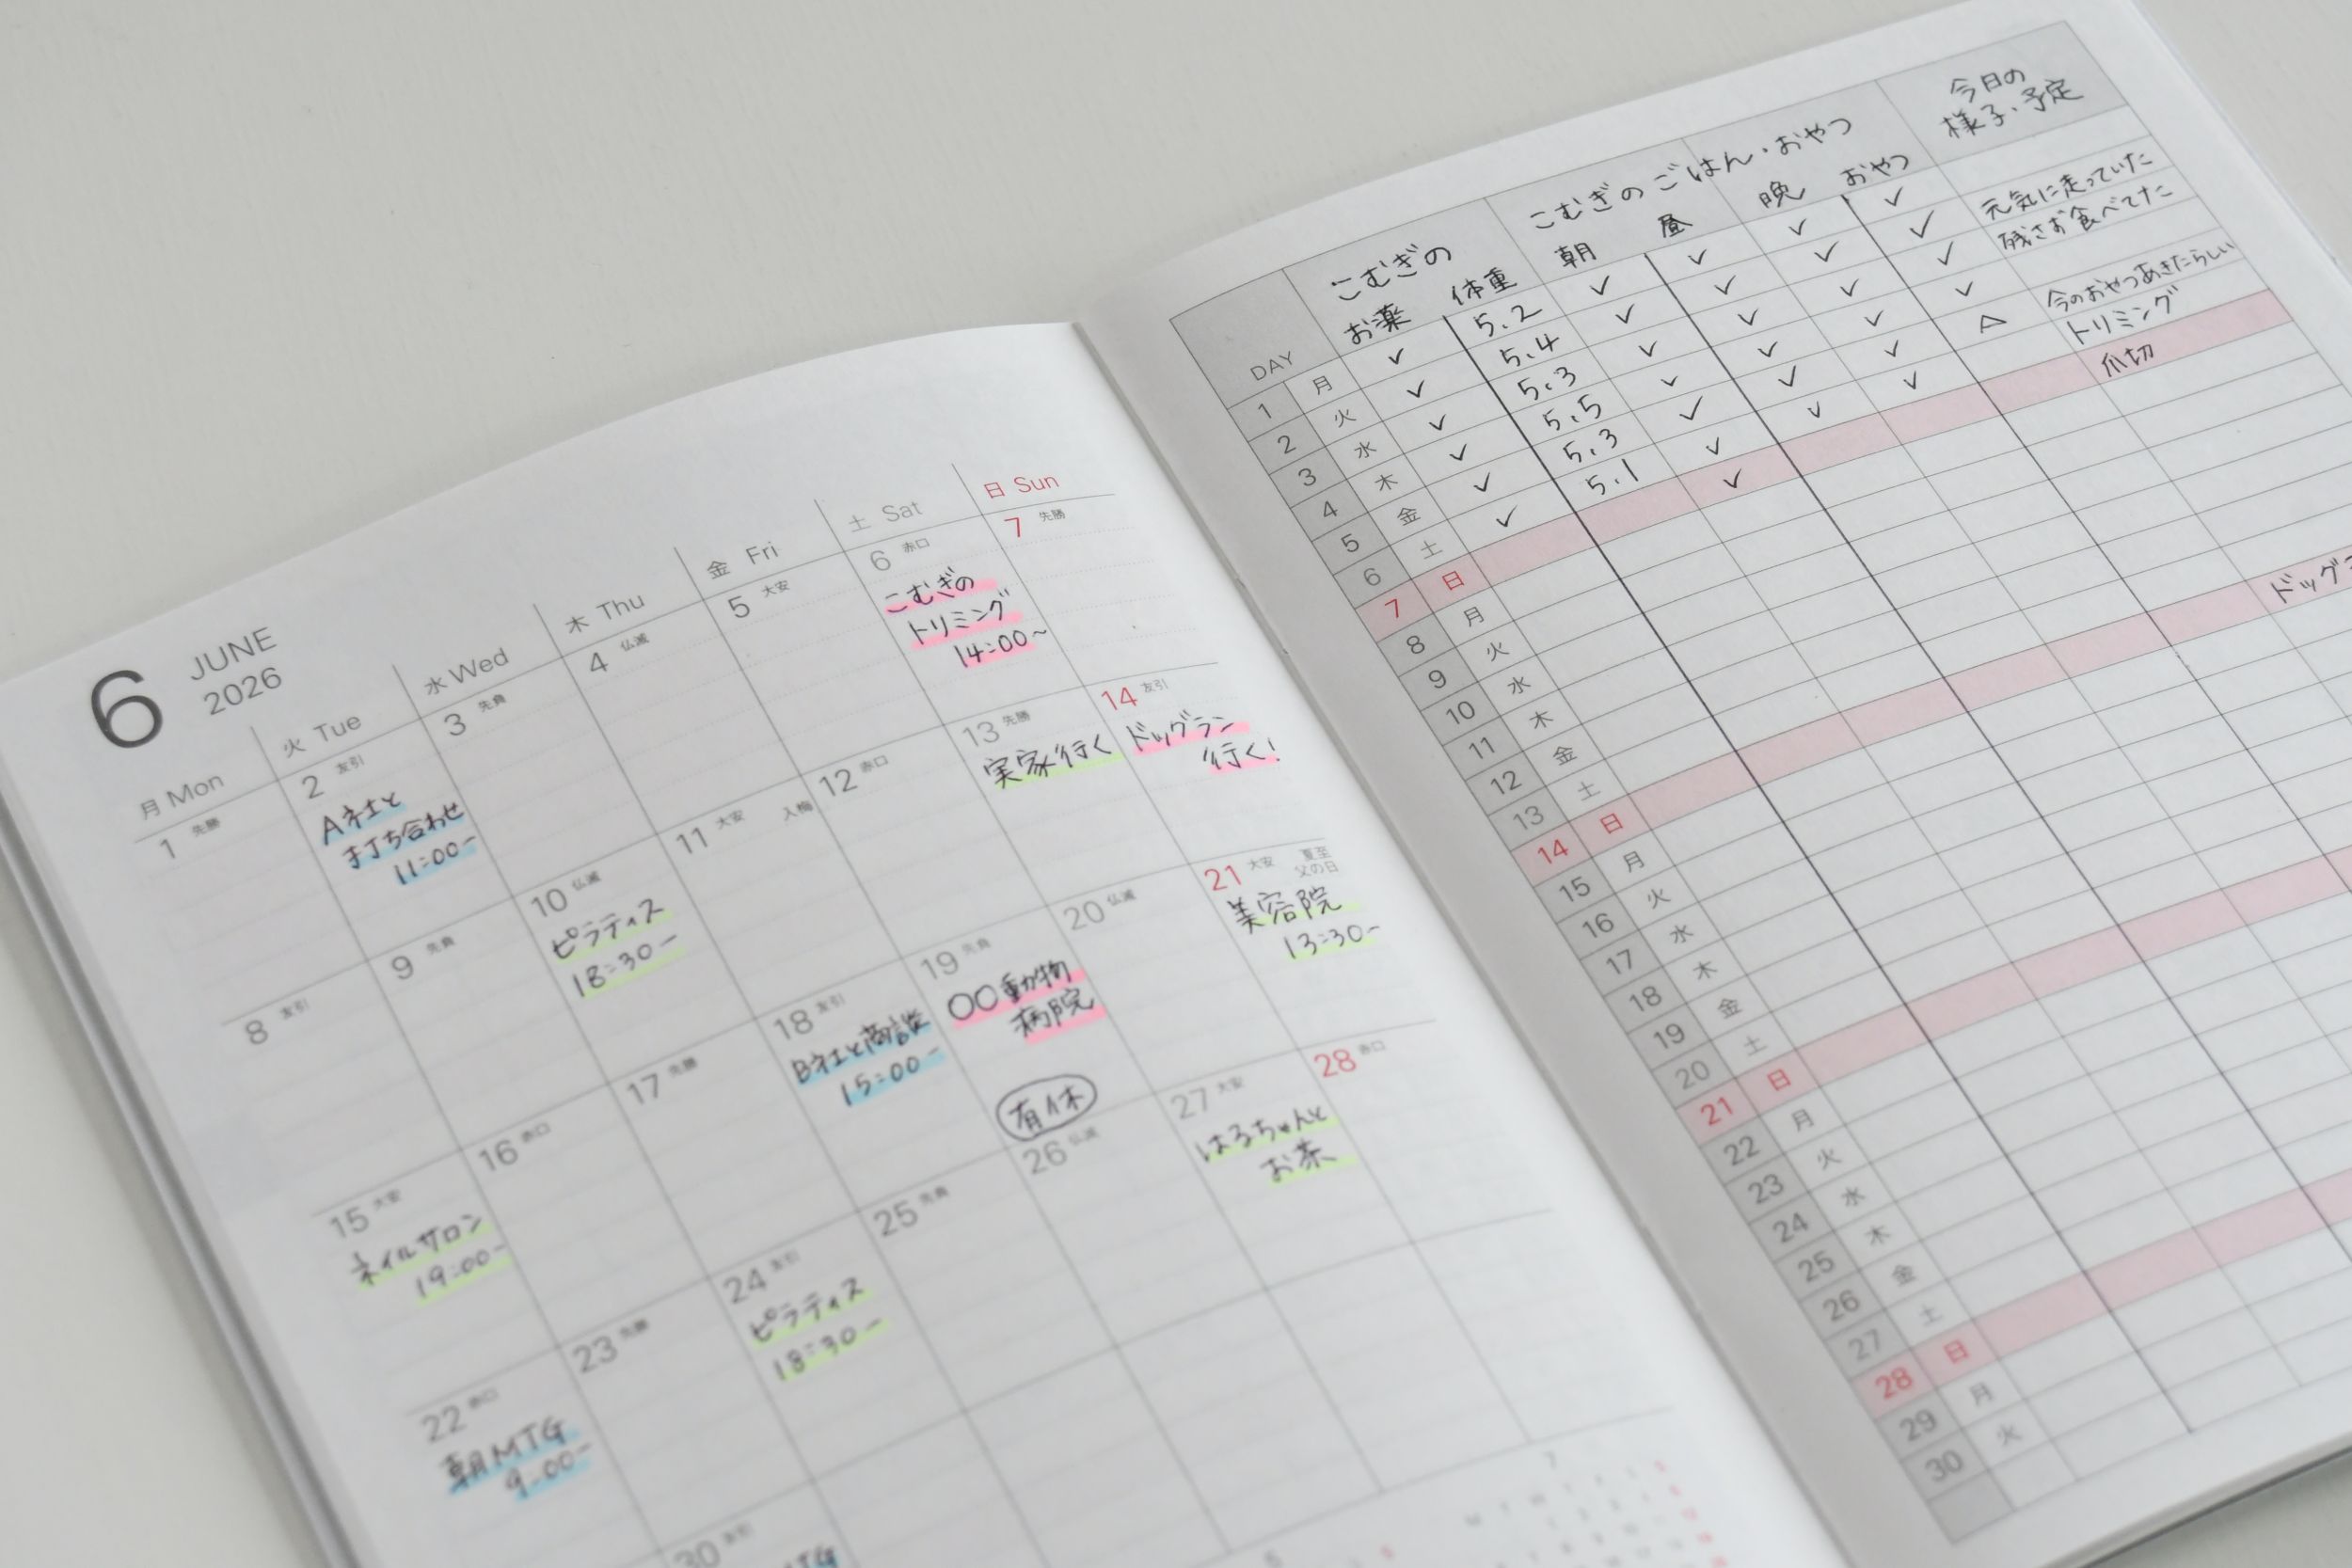 6
JUNE
2026
月 Mon
火 Tue
水 Wed
木 Thu
金 Fri
土 Sat
日 Sun
1 先勝
2 友引
A社と
打ち合わせ
11:00-
3 先負
4 仏滅
5 大安
6 赤口
こむぎの
トリミング
14:00~
7 先勝
8 友引
9 先負
10 仏滅
ピラティス
18:30-
11 大安 入梅
12 赤口
13 先勝
実家行く
14 友引
ドッグラン
行く!
15 大安
ネイルサロン
19:00-
16 赤口
17 先勝
18 友引
B社と商談
15:00-
19 先負
〇〇動物
病院
有休
20 仏滅
21 大安 夏至
父の日
美容院
13:30-
22 赤口
朝MTG
9:00-
23 先勝
24 友引
ピラティス
18:30-
25 先負
26 仏滅
27 大安
はるちゃんと
お茶
28 赤口
30 友引
TG
7
6
DAY
こむぎの
お薬
体重
こむぎのごはん・おやつ
朝 昼 晩 おやつ
今日の
様子・予定
1 月 ✓ 5.2 ✓ ✓ ✓ ✓
2 火 ✓ 5.4 ✓ ✓ ✓ ✓ 元気に走っていた
3 水 ✓ 5.3 ✓ ✓ ✓ ✓ 残さず食べてた
4 木 ✓ 5.5 ✓ ✓ ✓ ✓
5 金 ✓ 5.3 ✓ ✓ ✓ △ 今のおやつあきたらしい
6 土 ✓ 5.1 ✓ ✓ ✓ トリミング
7 日 ✓ 爪切
8 月
9 火
10 水
11 木
12 金
13 土
14 日 ドッグラ
15 月
16 火
17 水
18 木
19 金
20 土
21 日
22 月
23 火
24 水
25 木
26 金
27 土
28 日
29 月
30 火